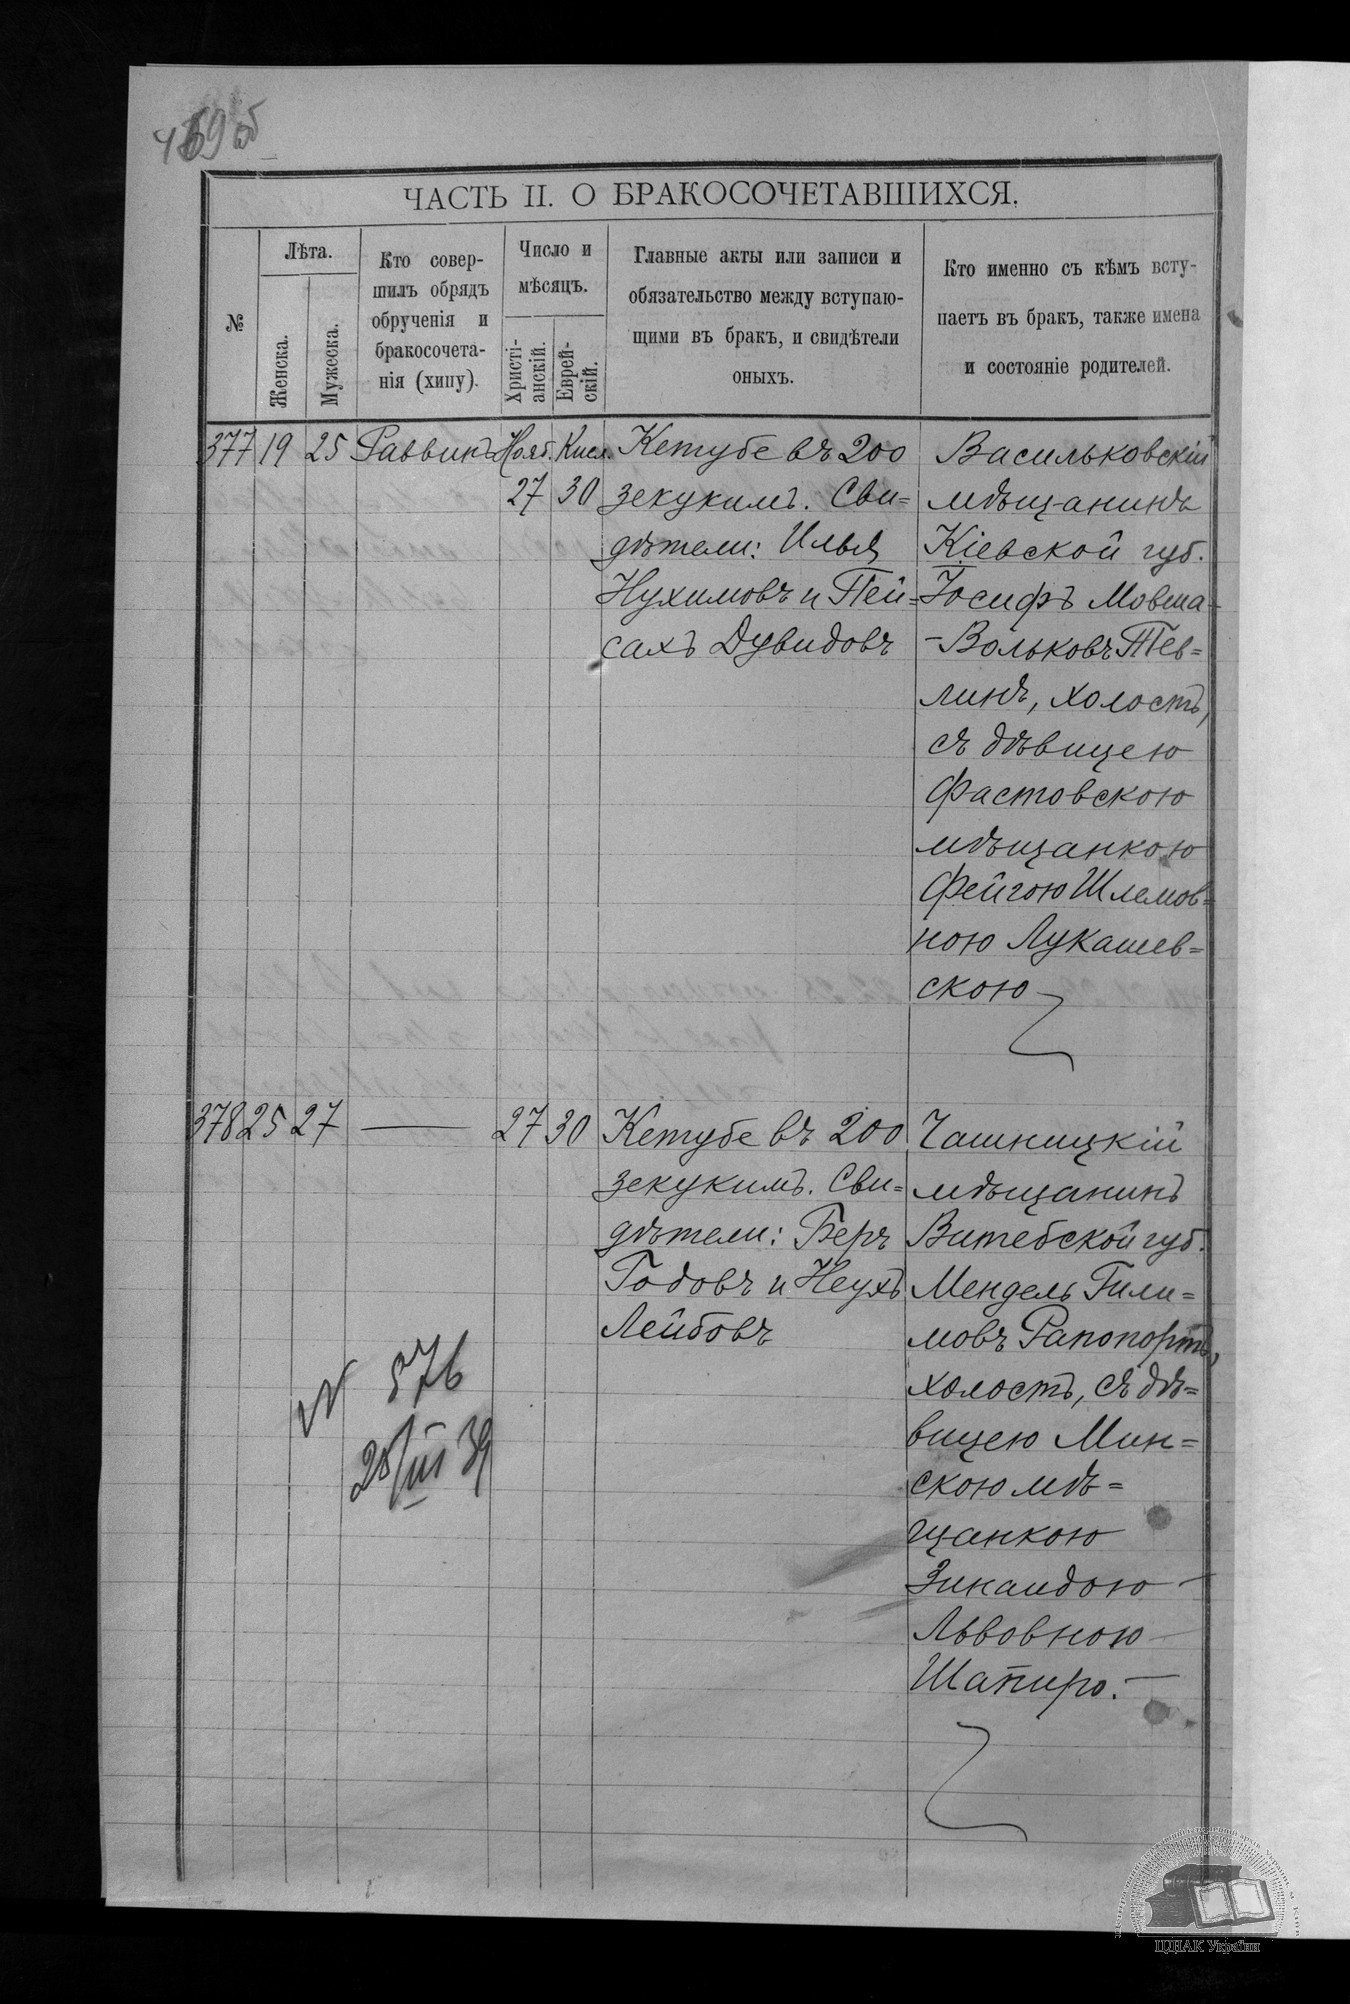 459 об
ЧАСТЬ II. О БРАКОСОЧЕТАВШИХСЯ.
№
Лѣта.
Женска.
Мужеска.
Кто совер-
шилъ обрядъ
обрученія и
бракосочета-
нія (хипу).
Число и
мѣсяцъ.
Христі-
анскій.
Еврей-
скій.
Главные акты или записи и
обязательство между вступаю-
щими въ бракъ, и свидѣтели
оныхъ.
Кто именно съ кѣмъ всту-
паетъ въ бракъ, также имена
и состояніе родителей.
377 19 25 Раввинъ Нояб. Кисл.
27 30
Кетубе въ 200
зекукимъ. Сви=
дѣтели: Илья
Нухимовъ и Пей=
сахъ Дувидовъ
Васильковскій
мѣщанинъ
Кіевской губ.
Іосифъ Мовша-
-Вольковъ Тев=
линъ, холостъ,
съ дѣвицею
Фастовскою
мѣщанкою
Фейгою Шлемов=
ною Лукашев=
скою
378 25 27 — 27 30
Кетубе въ 200
зекукимъ. Сви=
дѣтели: Беръ
Годовъ и Неухъ
Лейбовъ
Чашницкій
мѣщанинъ
Витебской губ.
Мендель Гили=
мовъ Рапопортъ,
холостъ, съ дѣ=
вицею Мин=
скою мѣ=
щанкою
Зинаидою
Львовною
Шапиро.—
N 576
28/III 39
ЦДІАК України